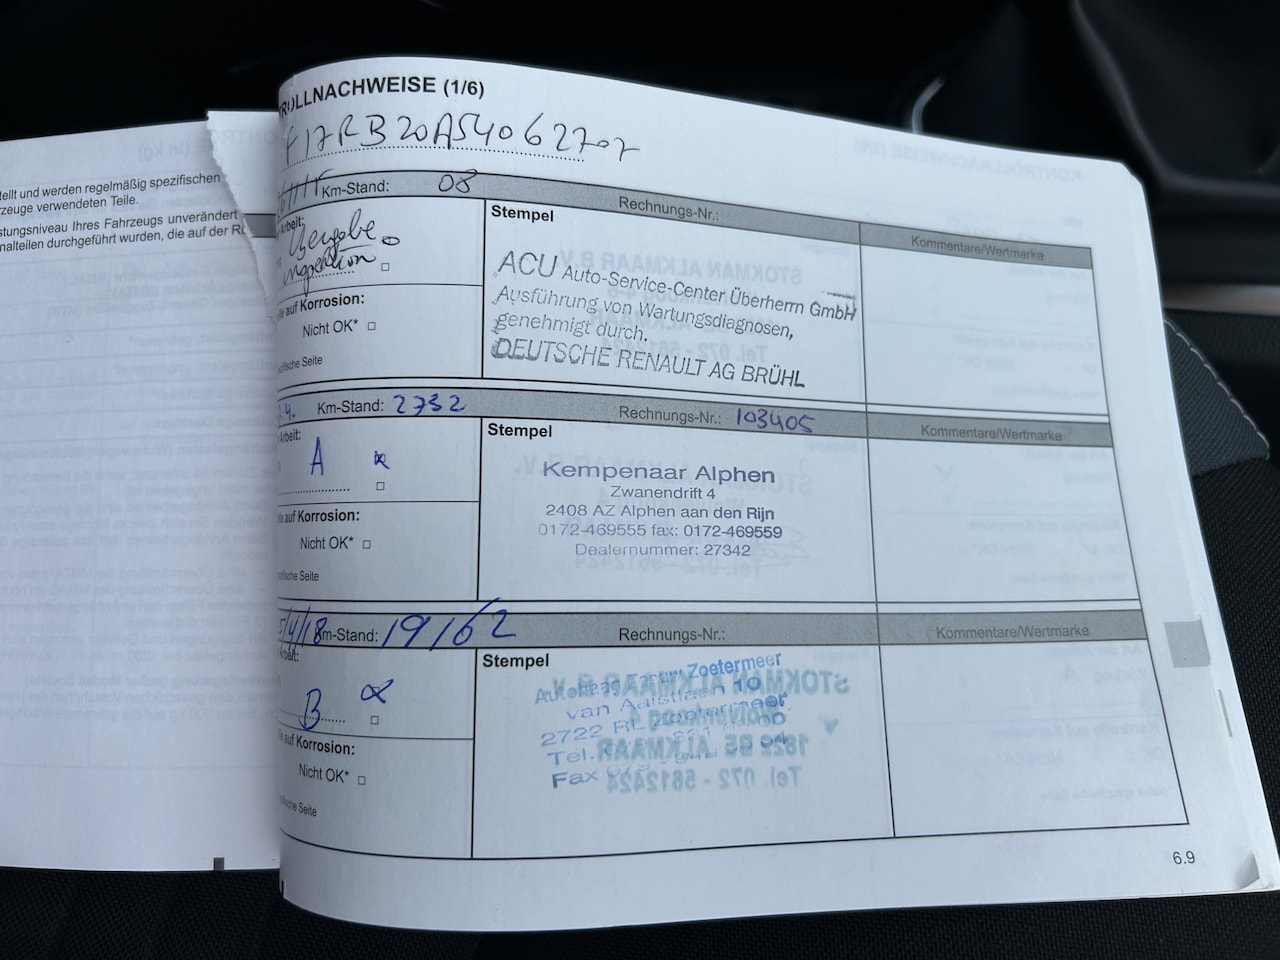 ROLLNACHWEISE (1/6)
F17RB20A54062707
Km-Stand: 08
Rechnungs-Nr.:
Arbeit:
Stempel
Kommentare/Wertmarke
Übergabe
Inspektion
ACU Auto-Service-Center Überherrn GmbH
Ausführung von Wartungsdiagnosen,
genehmigt durch.
DEUTSCHE RENAULT AG BRÜHL
auf Korrosion:
Nicht OK*
Seite
Km-Stand: 2732
Rechnungs-Nr.: 103405
Kommentare/Wertmarke
Arbeit:
Stempel
A
Kempenaar Alphen
Zwanendrift 4
2408 AZ Alphen aan den Rijn
0172-469555 fax: 0172-469559
Dealernummer: 27342
auf Korrosion:
Nicht OK*
Seite
5/4/18 Km-Stand: 19162
Rechnungs-Nr.:
Kommentare/Wertmarke
Arbeit:
Stempel
B
Zoetermeer
van Aalstlaan 10
2722 RL Zoetermeer
Tel.
Fax
auf Korrosion:
Nicht OK*
Seite
6.9
tellt und werden regelmäßig spezifischen
rzeuge verwendeten Teile.
stungsniveau Ihres Fahrzeugs unverändert
nalteilen durchgeführt wurden, die auf der